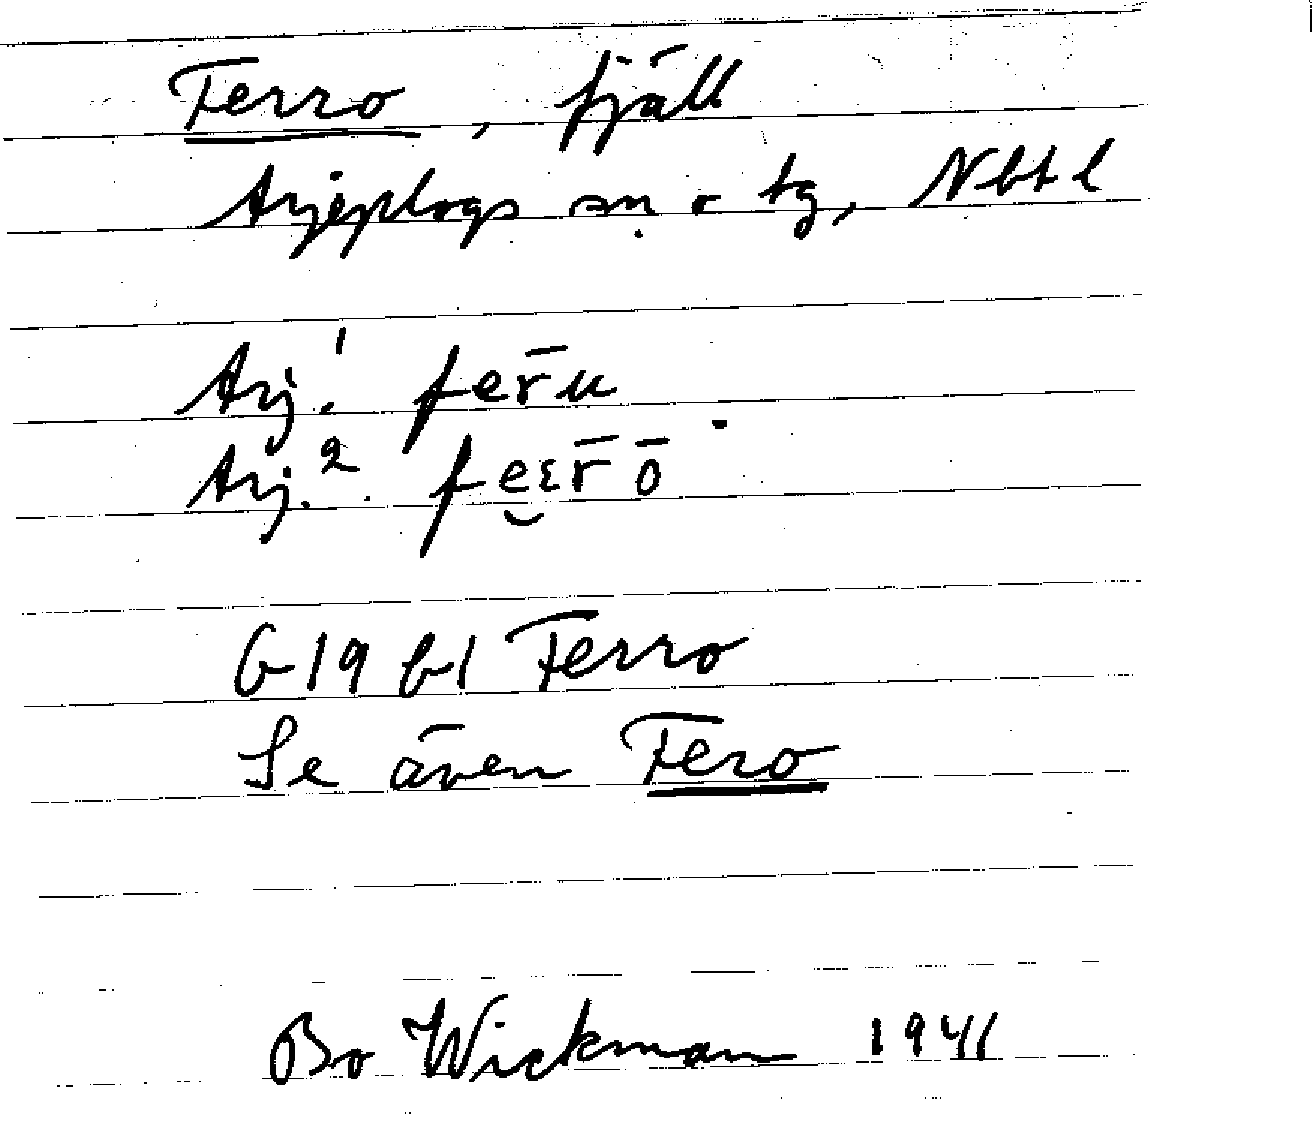 Ferro, fjäll
Arjeplogs sn o tg, Nbt l
Arj.¹ fer̄u
Arj.². fe̮ɛr̄ō
G 19 bl Ferro
Se även Fero
Bo Wickman 1941